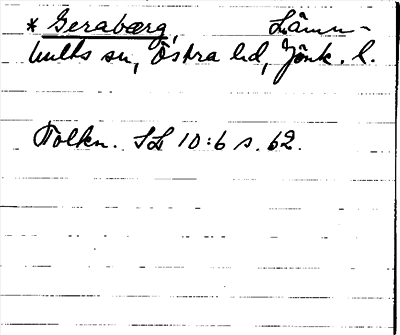 * Gerabærg, Lämn-
hults sn, Östra hd, Jönk. l.
Tolkn. SL 10:6 s. 62.